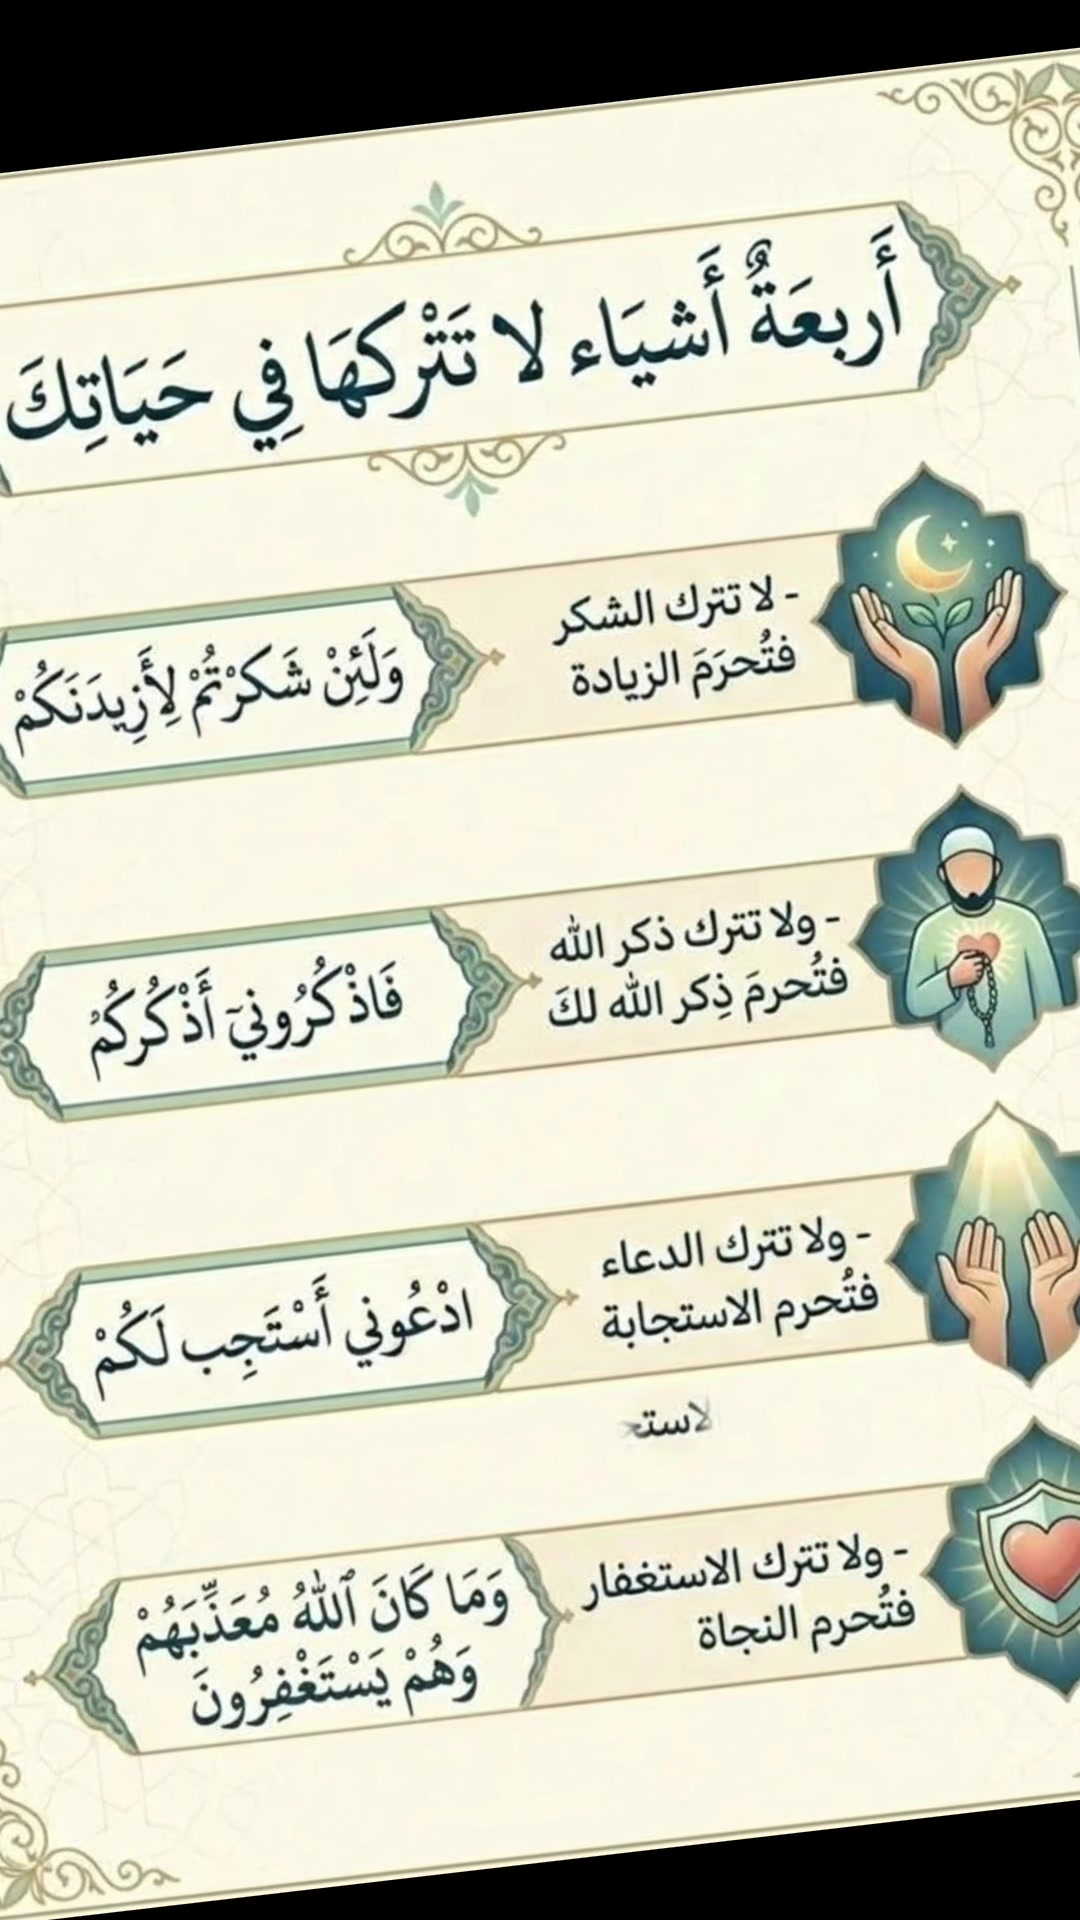 أَربعَةٌ أَشيَاء لا تَتْركهَا فِي حَيَاتِكَ
- لا تترك الشكر
فتُحرَمَ الزيادة
وَلَئِنْ شَكَرْتُمْ لِأَزِيدَنَكُمْ
- ولا تترك ذكر الله
فتُحرمَ ذِكر الله لكَ
فَاذْكُرُونِيٓ أَذْكُرْكُمْ
- ولا تترك الدعاء
فتُحرم الاستجابة
ادْعُونِي أَسْتَجِب لَكُمْ
- ولا تترك الاستغفار
فتُحرم النجاة
وَمَا كَانَ ٱللهُ مُعَذِّبَهُمْ
وَهُمْ يَسْتَغْفِرُونَ